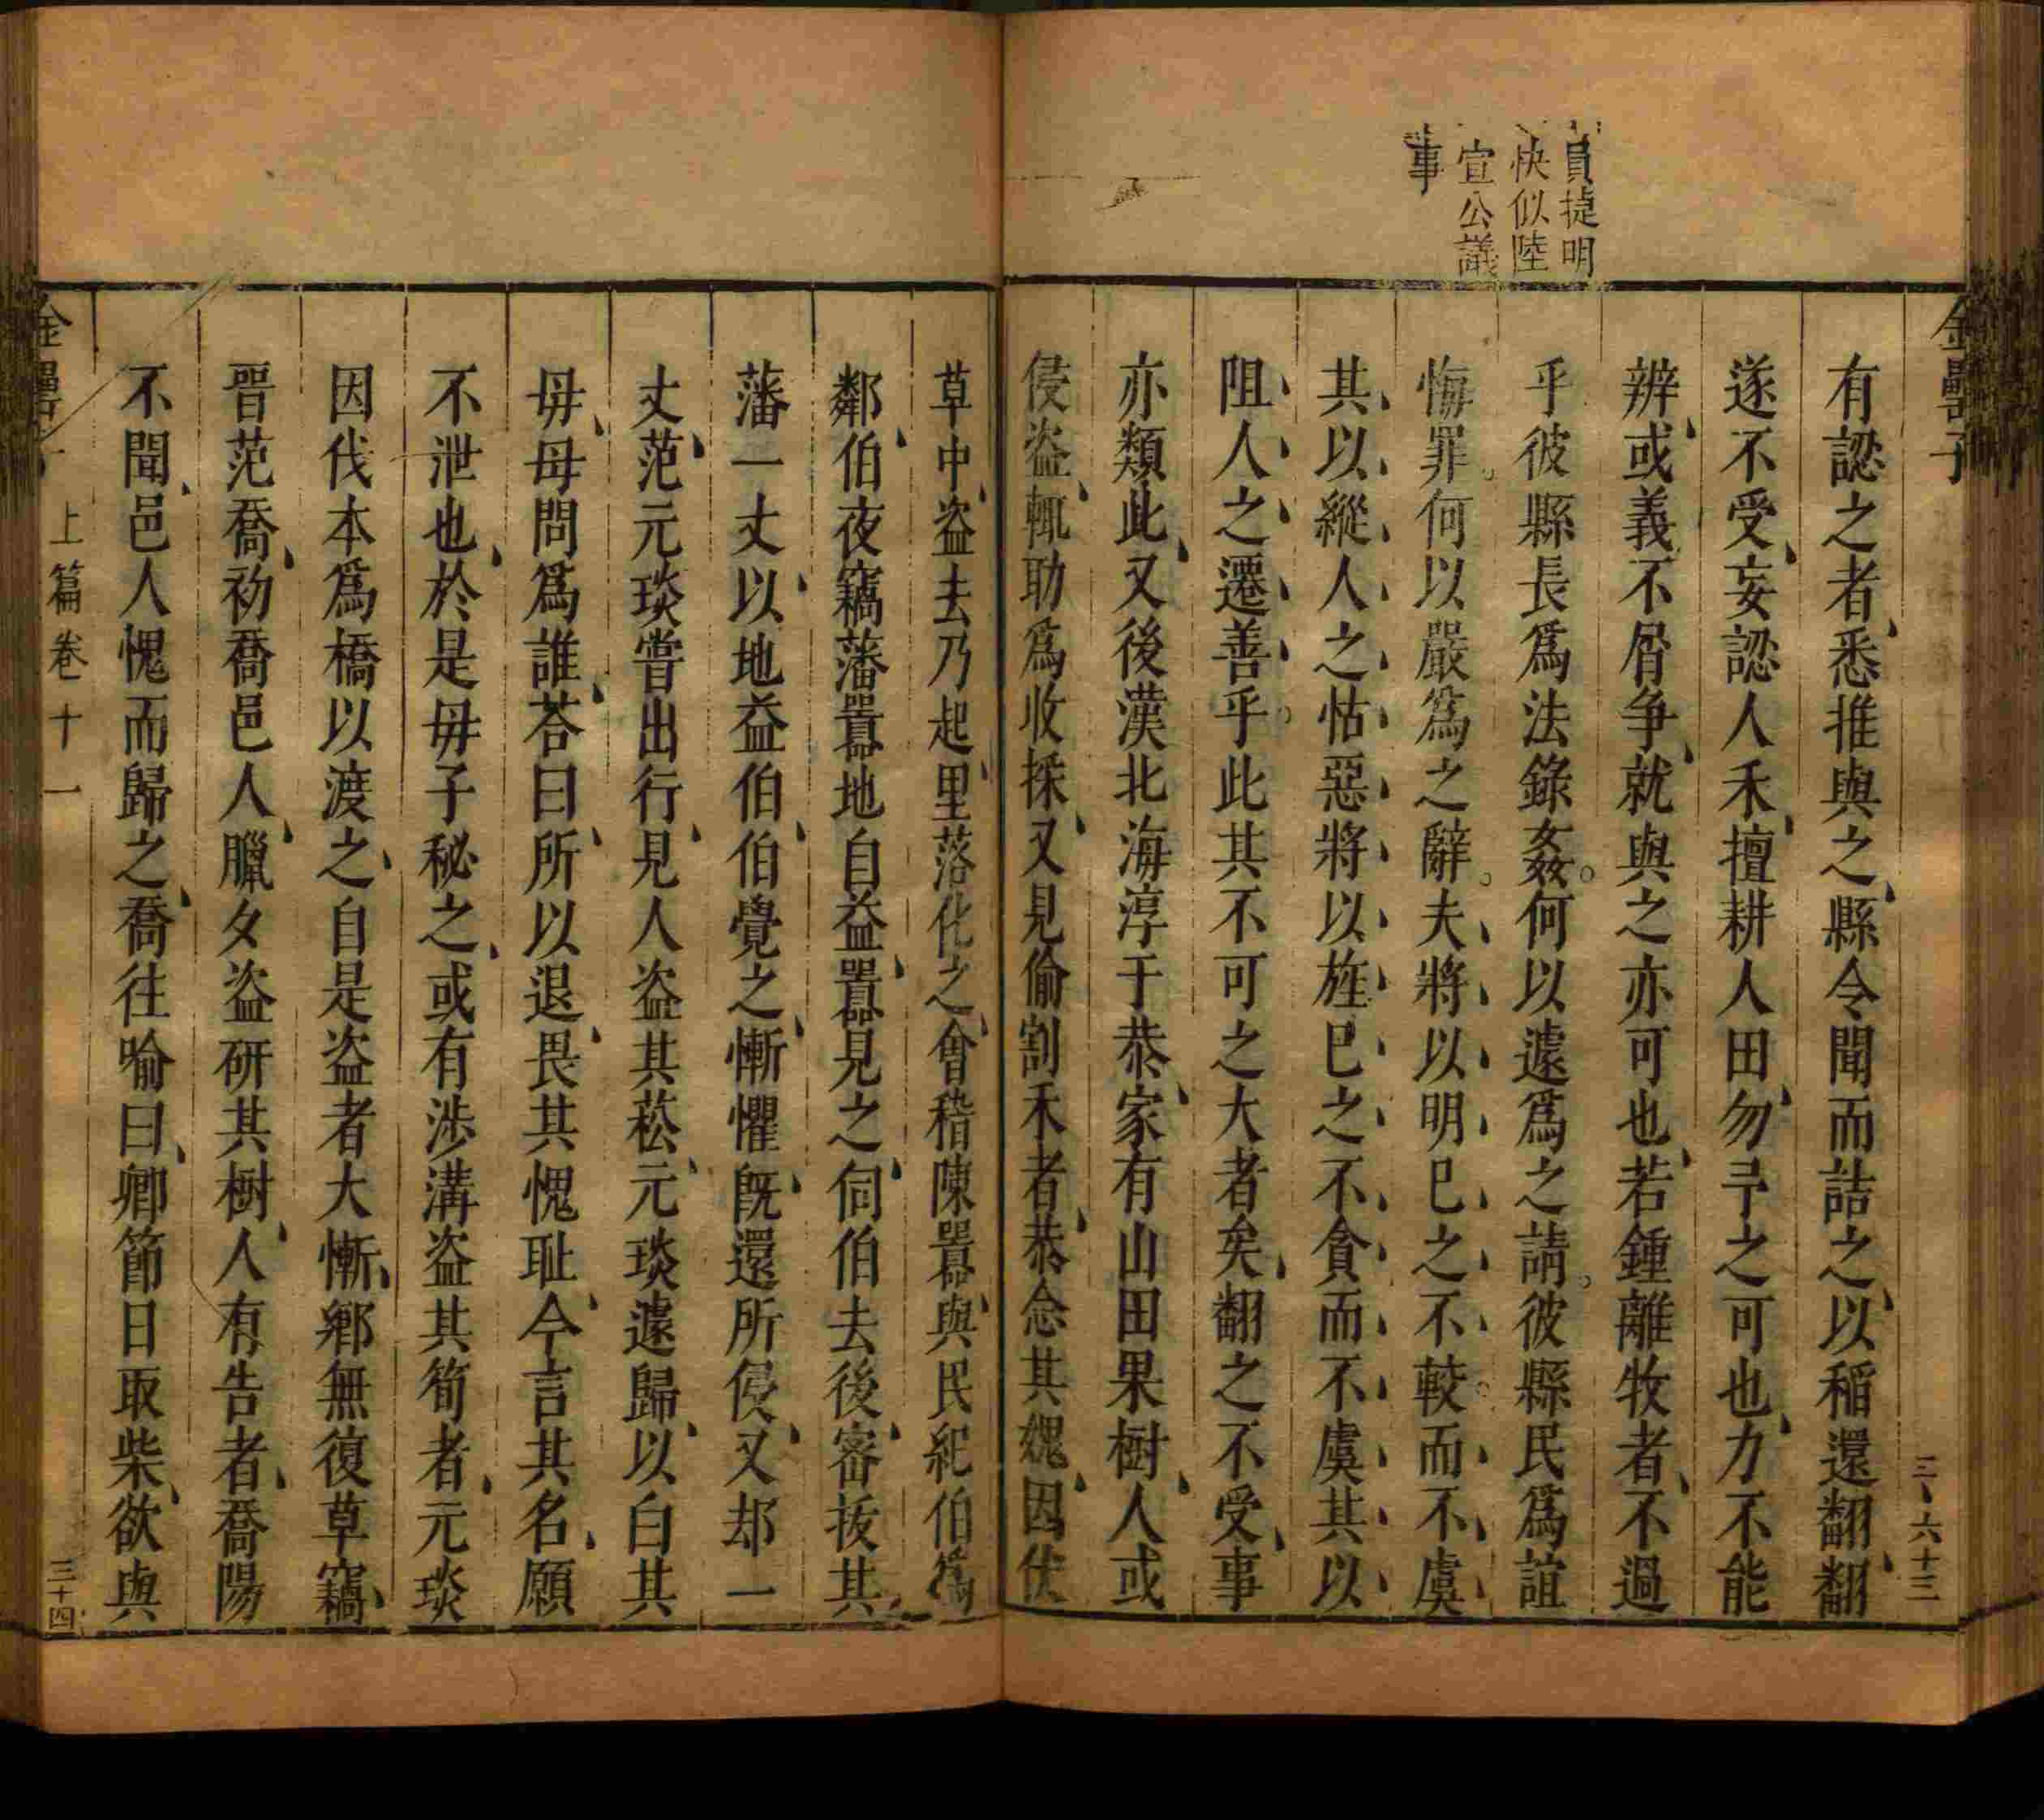 金罍子
三六十三
員㨗明
快似陸
宣公議
事
有認之者悉推與之縣令聞而詰之以稻還翻翻
遂不受妄認人禾擅耕人田勿予之可也力不能
辨或義不屑争就與之亦可也若鍾離牧者不過
乎彼縣長爲法錄姦何以遽爲之請彼縣民爲誼
悔罪何以嚴爲之辭夫將以明巳之不較而不虞
其以縱人之怙惡將以旌巳之不貪而不虞其以
阻人之遷善乎此其不可之大者矣翻之不受事
亦類此又後漢北海淳于恭家有山田果樹人或
侵盗輒助爲收採又見偷割禾者恭念其媿因伏
草中盗去乃起里落化之會稽陳囂與民紀伯爲
鄰伯夜竊藩囂地自益囂見之伺伯去後密拔其
藩一丈以地益伯伯覺之慚懼旣還所侵又却一
丈范元琰嘗出行見人盗其菘元琰遽歸以白其
母母問爲誰荅曰所以退畏其愧耻今言其名願
不泄也於是母子秘之或有涉溝盗其筍者元琰
因伐木爲橋以渡之自是盗者大慚鄉無復草竊
晉范喬初喬邑人臘夕盗斫其樹人有告者喬陽
不聞邑人愧而歸之喬往喻曰卿節日取柴欲與
金罍子
上篇卷十一
三十四